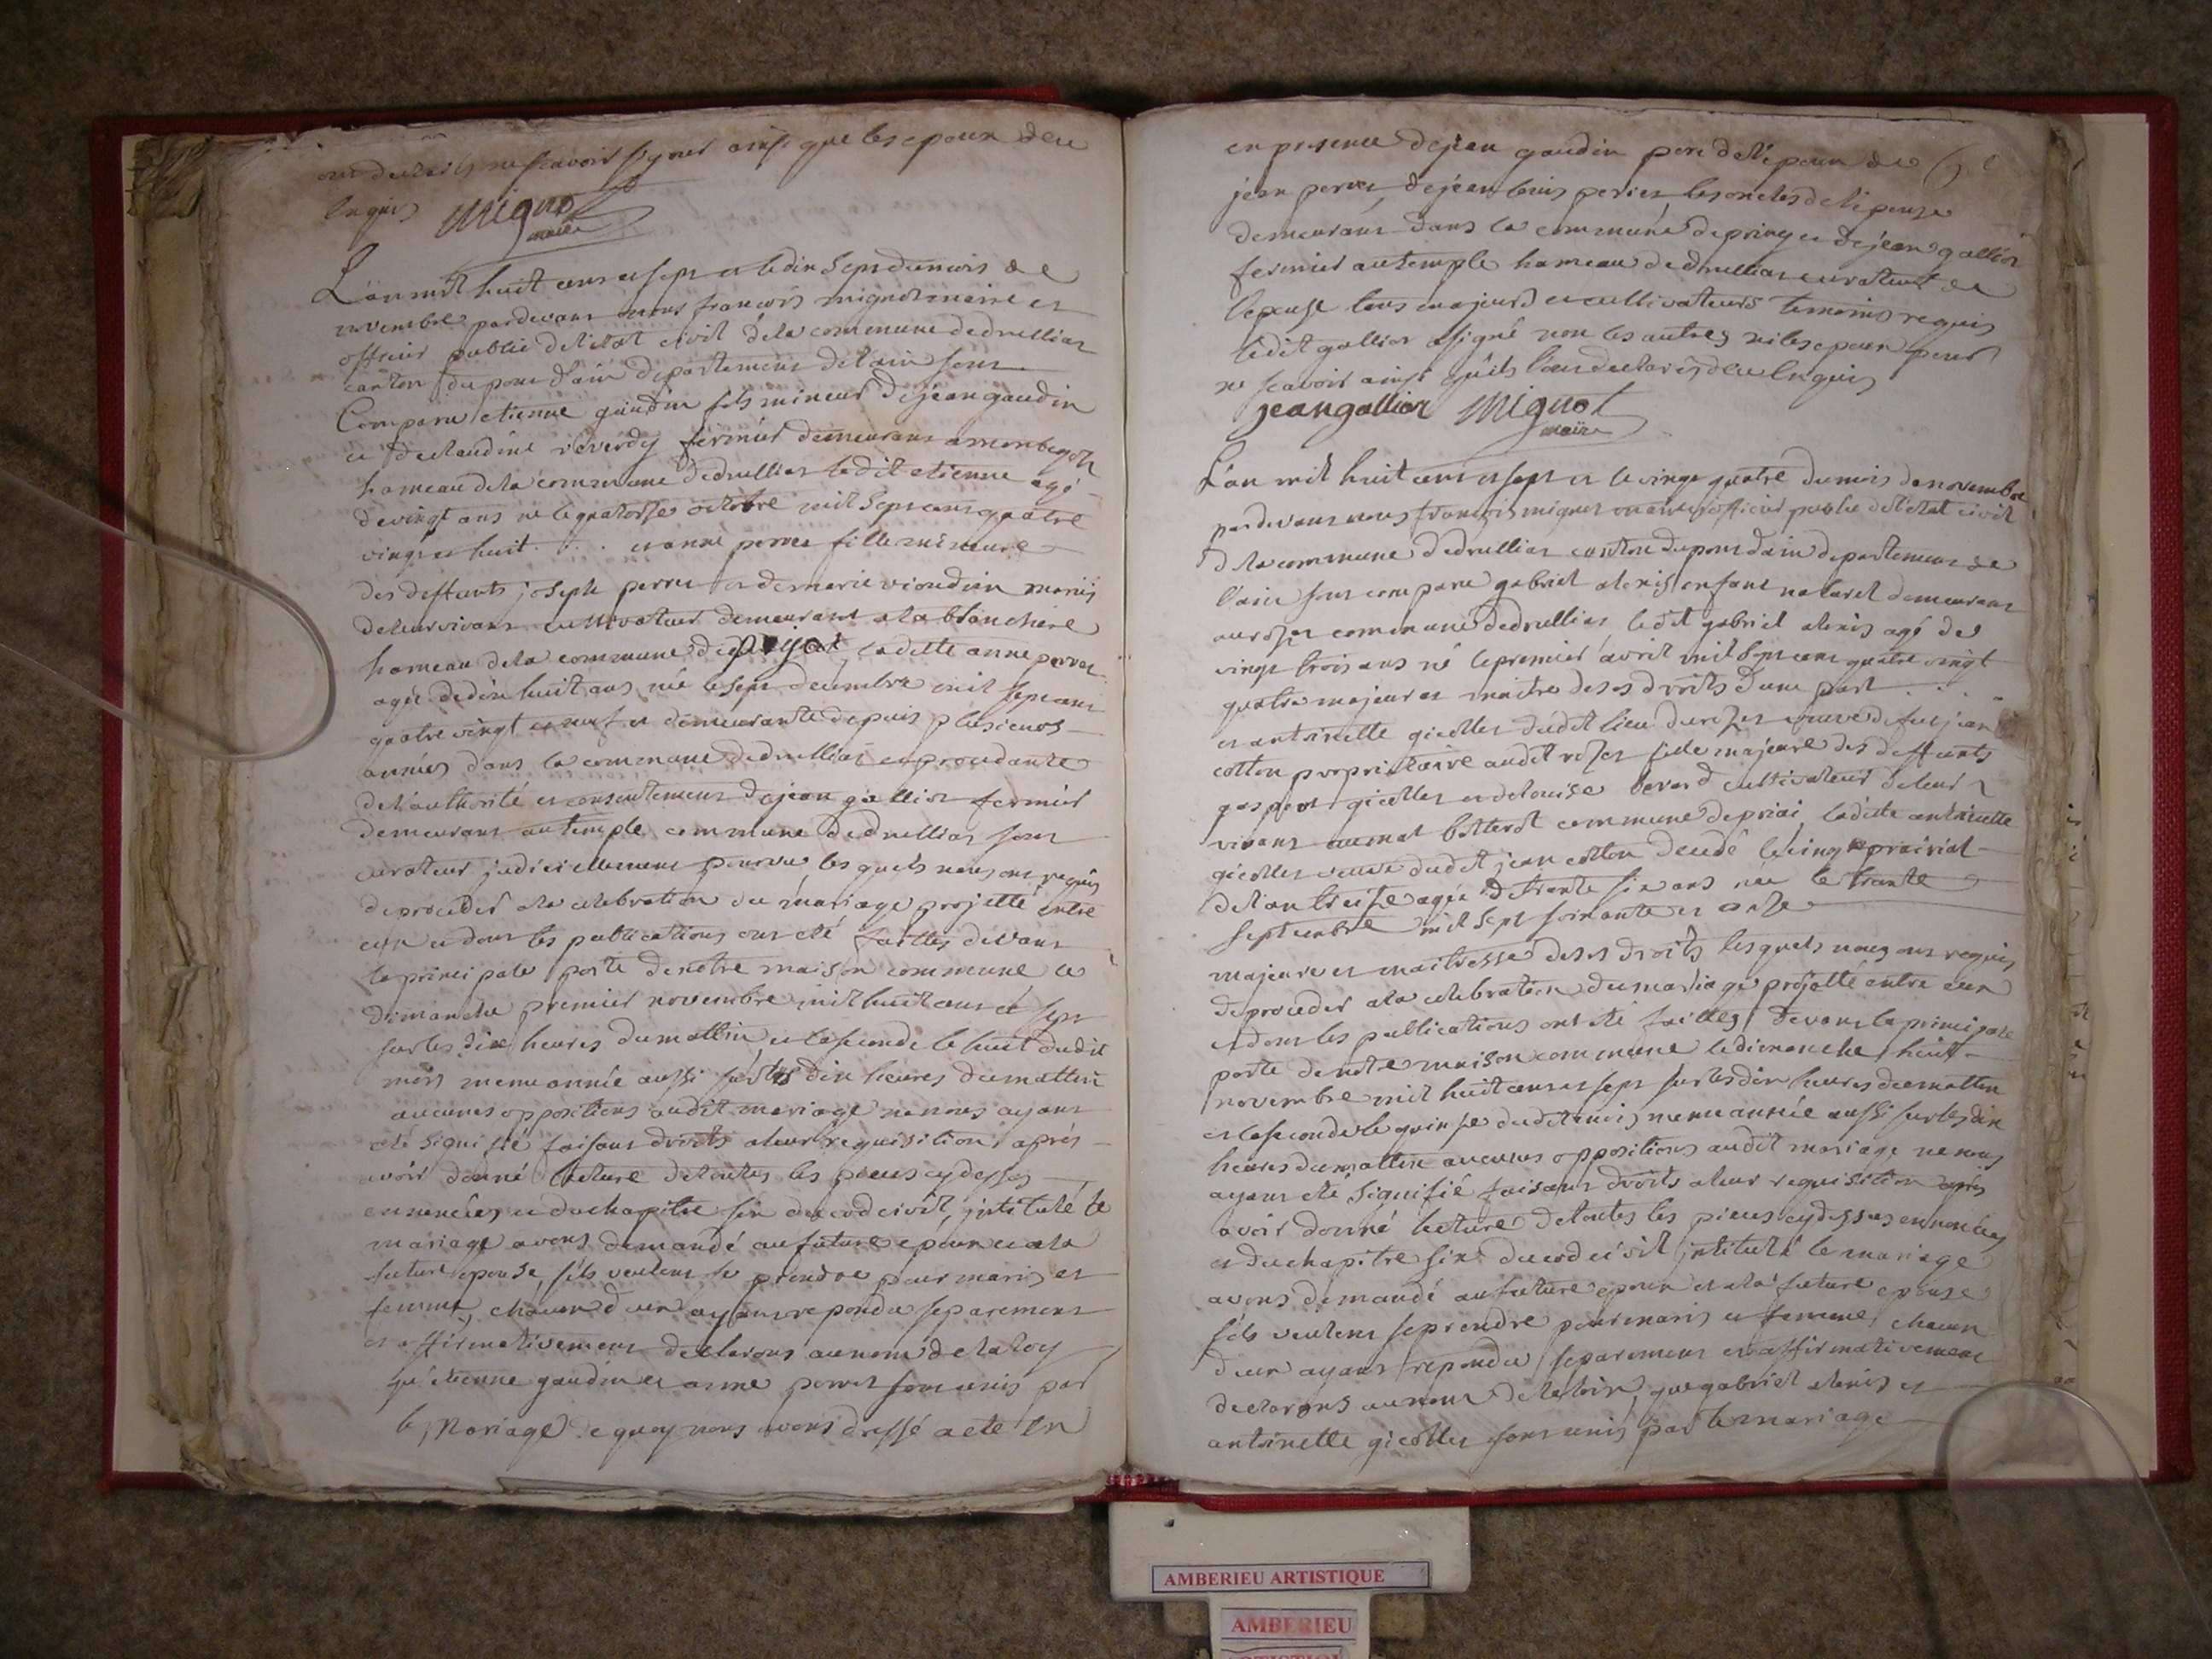 ont declarés ne sçavoir signer ainsi que les epoux de ce
enquis Mignot
maire
L'an mil huit cens et sept et le dix sept du mois de
novembre pardevant nous françois mignot maire et
officier public de l'etat civil de la commune dedruillias
canton du pont d'ain departement de l'ain sont
Comparu etienne gaudin fils mineur de jean gaudin
et de claudine reverdy fermier demeurant a
hameau de la commune dedruillias ledit etienne agé
de vingt ans né le quatorse octobre mil sept cens quatre
vingt et huit . . . et anne perret fille mineure
des deffunts joseph perret et de marie vioudin maries
de leur vivant cultivateur demeurant a la blanchere
hameau de la commune de ladette anne perret
agée de dix huit ans née le sept decembre mil sept cens
quatre vingt et neuf et demeurante depuis plusieurs
années dans la commune dedruillias et procedante
de l'authorité et consentement de jean gallior fermier
demeurant au temple commune dedruillias sont
curateur judiciellement pourvu, les quels nous ont requis
de proceder a la celebration du mariage projetté entre
eux et dont les publications ont eté faittes devant
la principale porte de notre maison commune le
dimanche premier novembre mil huit cens et sept
sur les dix heures du mattin et la seconde le huit dudit
mois meme année aussi sur les dix heures du mattin
aucunes oppositions audit mariage ne nous ayant
eté signifié faisant droits a leur requisition, aprés
avoir donné lecture de toutes les pieces cydessus
ennoncées et du chapitre six du cod civil, intitulé le
mariage avons demandé au future epoux et a la
future epouse, s'ils veulent se prendre pour maris et
femme, chacun d'eux ayant repondu separement
et affirmativement declarons au nom de la loy
qu'etienne gaudin et anne perret sont unis par
le Mariage de quoy nous avons dressé acte en
en presence de jean gaudin pere de l'epoux de
jean perret, de jean louis perret, les oncles de l'epouse
demeurant dans la commune de et de jean gallior
fermier au temple hameau dedruillias curateur de
l'epouse tous majeurs et cultivateurs temoins requis
ledit gallior a signé non les autres ni les epoux pour
ne sçavoir ainsi qu'ils l'ont declarés de ce enquis
jean gallior Mignot
maire
L'an mil huit cens et sept et le vingt quatre du mois de novembre
pardevant nous françois mignot maire officier public de l'etat civil
de la commune dedruillias canton du pont dain departement de
l'ain sont comparu gabriel alexis enfant naturel demeurant
au rozet commune dedruillias, ledit gabriel alexis agé de
vingt trois ans né le premier avril mil sept cens quatre vingt
quatre majeur et maitre de ses droits d'une part . . .
et antoinette gicollet dudit lieu du rozet veuve de feu jean
cotton propriétaire audit rozet fille majeure des deffunts
gaspard gicollet et de louise berard cultivateur de leur
vivant commune de priai, ladite antoinette
gicollet veuve dudit jean cotton decedé le cinq prairial
de l'an treize agée de trante six ans née le trante
septembre mil sept soixante et onze
majeure et maitresse de ses droits, lesquels nous ont requis
de proceder a la celebration du mariage projetté entre eux
et dont les publications ont eté faittes devant la principale
porte de notre maison commune le dimanche huit
novembre mil huit cens et sept sur les dix heures du mattin
et la seconde le quinse dudit mois meme année aussi sur les dix
heures du mattin aucunes oppositions audit mariage ne nous
ayant eté signifié faisant droits a leur requisition aprés
avoir donné lecture de toutes les pieces cydessus ennoncées
et du chapitre six du cod civil intitulé le mariage
avons demandé au future epoux et a la future epouse
s'ils veulent se prendre pour maris et femme, chacun
d'eux ayant repondu separement et affirmativement
declarons au nom de la loix, que gabriel alexis et
antoinette gicollet sont unis par le mariage
AMBERIEU ARTISTIQUE
AMBERIEU